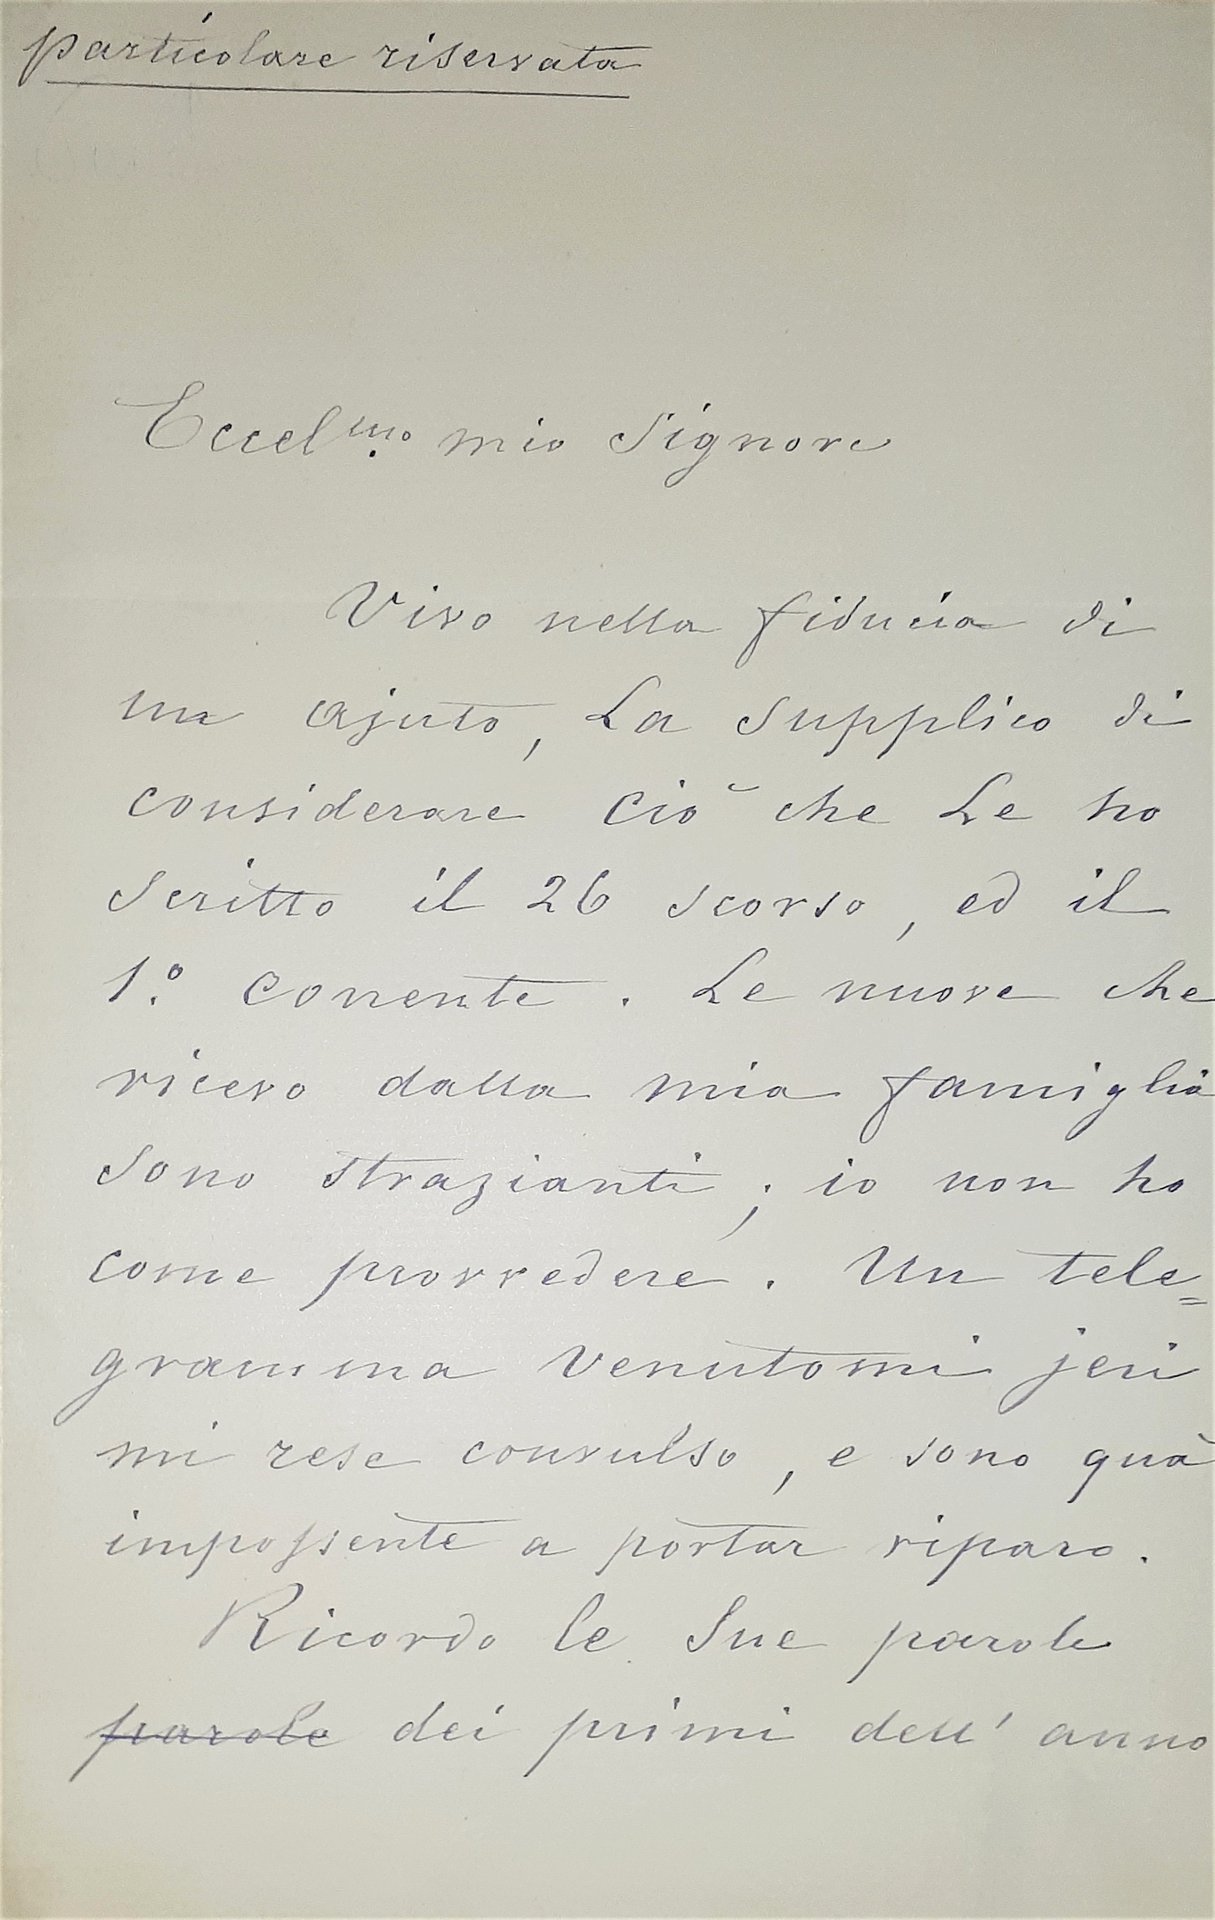 particolare riservata
Eccelmo. mio Signore
Vivo nella fiducia di
un ajuto, La supplico di
considerare ciò che Le ho
scritto il 26 scorso, ed il
1.° corrente. Le nuove che
ricevo dalla mia famiglia
sono strazianti; io non ho
come provvedere. Un tele=
gramma venutomi jeri
mi rese convulso, e sono quà
impossente a portar riparo.
Ricordo le Sue parole
parole dei primi dell' anno